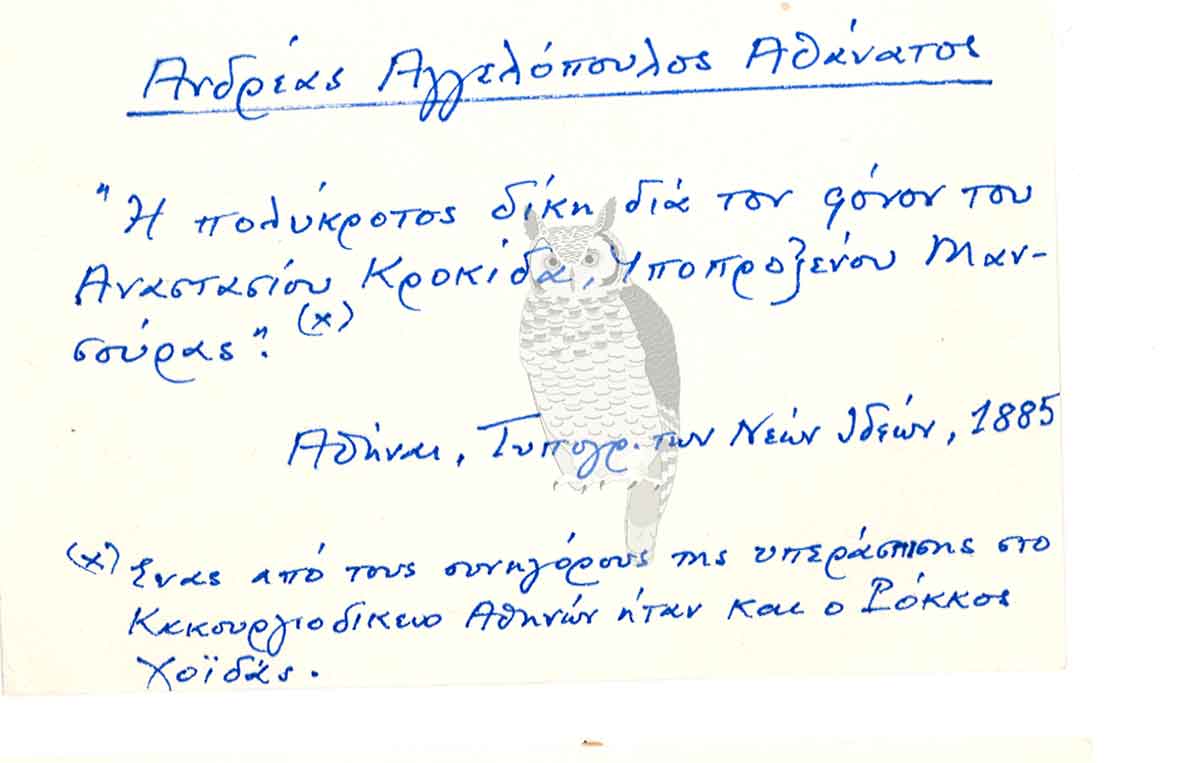 Ανδρέας Αγγελόπουλος Αθάνατος
"Η πολύκροτος δίκη διά τον φόνον του
Αναστασίου Κροκίδα, Υποπροξένου Μαν-
σούρας". (x)
Αθήναι, Τυπογρ. των Νεών Ιδεών, 1885
(x) Ένας από τους συνηγόρους της υπεράσπισης στο
Κακουργιοδικείο Αθηνών ήταν και ο Ρόκκος
Χοϊδάς.